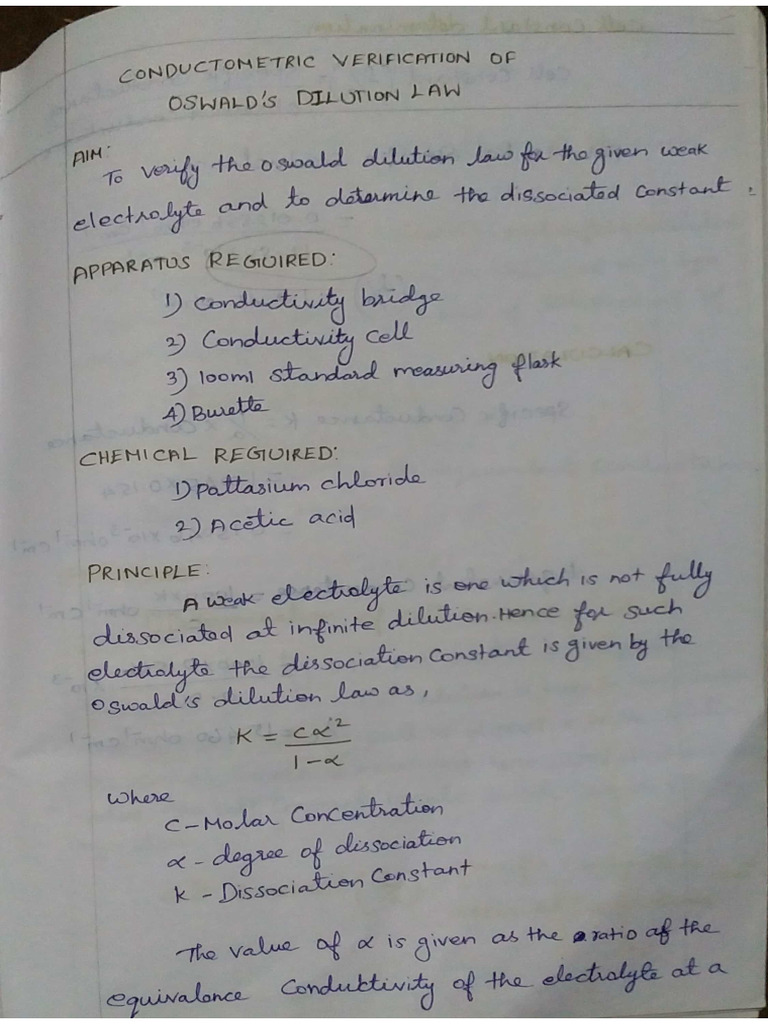 CONDUCTOMETRIC VERIFICATION OF
OSWALD'S DILUTION LAW
AIM:
To verify the oswald dilution law for the given weak
electrolyte and to determine the dissociated constant.
APPARATUS REQUIRED:
1) Conductivity bridge
2) Conductivity cell
3) 100ml standard measuring flask
4) Burette
CHEMICAL REQUIRED:
1) Pattasium chloride
2) Acetic acid
PRINCIPLE:
A weak electrolyte is one which is not fully
dissociated at infinite dilution. Hence for such
electrolyte the dissociation constant is given by the
oswald's dilution law as,
K = cα²/1-α
where
C - Molar Concentration
α - degree of dissociation
K - Dissociation Constant
The value of α is given as the ratio of the
equivalance Conductivity of the electrolyte at a